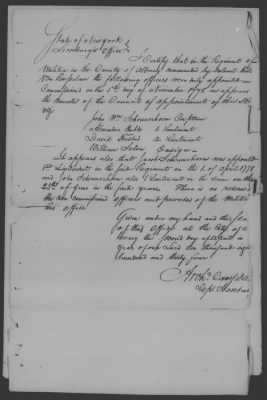 State of New York
Secretary's Office
I Certify that in the Regiment of
Militia in the County of Albany commanded by
the following officers were duly appointed and
Commissioned on the 5th day of November 1778 as appears
the minutes of the Council of appointment of this State
viz
John Wm Schermerhorn Captain
Alexander 1 Lieutenant
David 2 Lieutenant
William Ensign
It appears also that Jacob Schermerhorn was appointed
1st Lieutenant in the said Regiment on the 2 of April 1778
and John Schermerhorn also 1 Lieutenant in the same on the
22d of June in the said year. There is no record
the non commissioned officers and privates of the Militia
this Office
Given under my hand and the seal
of this Office at the City of
the second day of in
year of our Lord One thousand eight
hundred and thirty four
Archd Campbell
Dept Secretary